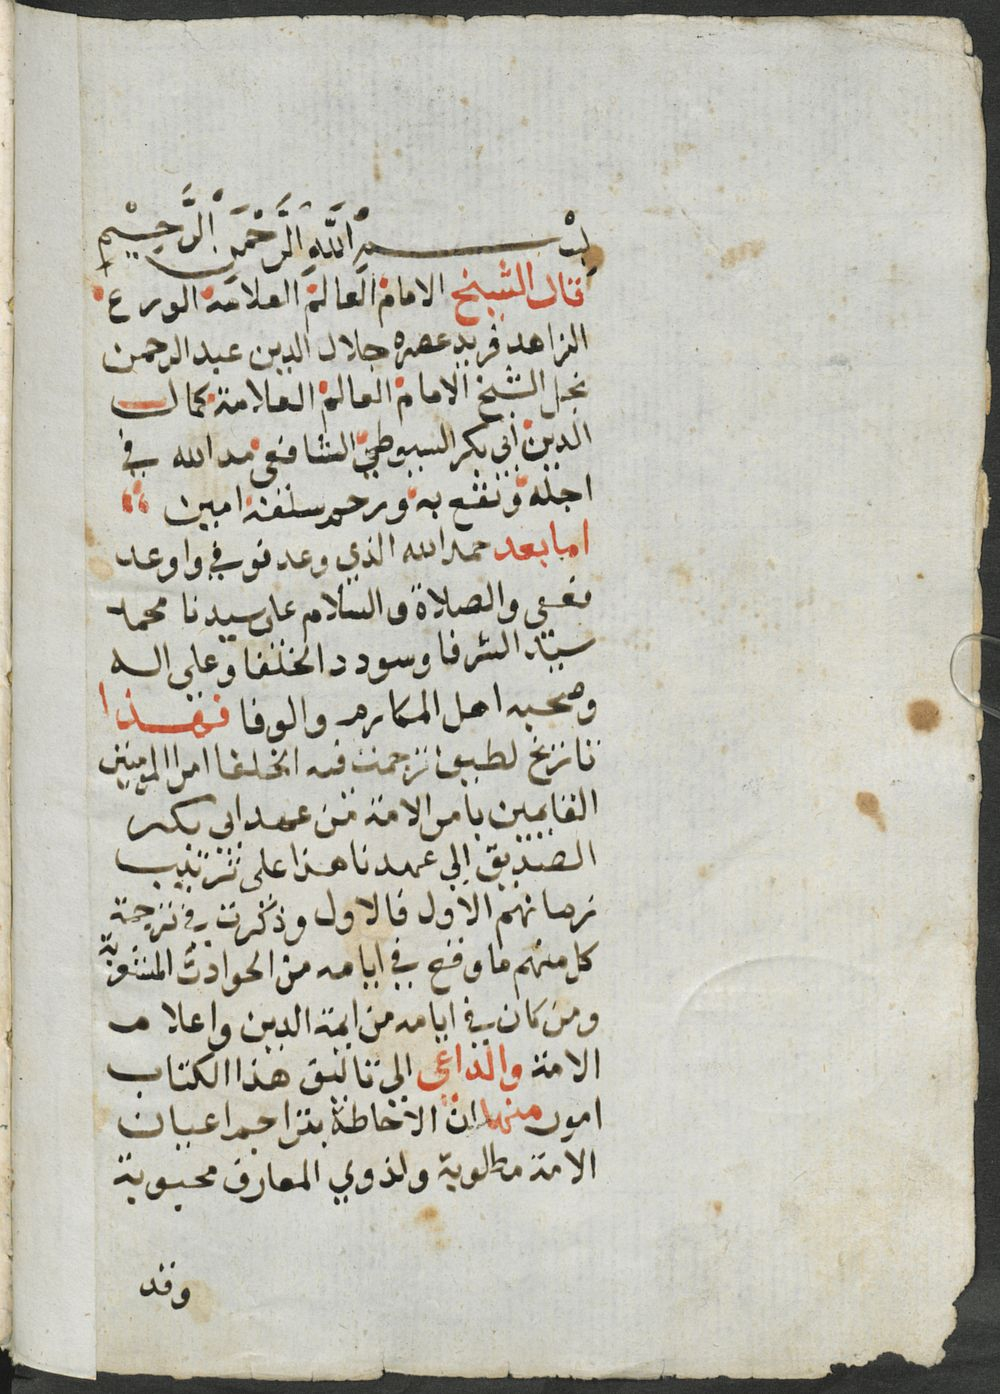 بسم الله الرحمن الرحيم
قال الشيخ الامام العالم العلامة الورع
الزاهد فريد عصره جلال الدين عبد الرحمن
نجل الشيخ الامام العالم العلامة كمال
الدين ابي بكر السيوطي الشافعي مد الله في
اجله ونفع به ورحم سلفه امين
اما بعد حمد الله الذي وعد فوفي واوعد
فعفي والصلاة والسلام على سيدنا محمد
سيد الشرفا وسودد الخلفا وعلي اله
وصحبه اهل المكارم والوفا فهذا
تاريخ لطيف ترجمت فيه الخلفا امرا المومنين
القايمين بامر الامة من عهد ابي بكر
الصديق الي عهدنا هذا على ترتيب
زمانهم الاول فالاول وذكرت في ترجمة
كل منهم ما وقع في ايامه من الحوادث المستغربة
ومن كان في ايامه من ايمة الدين واعلام
الامة والداعي الي تاليف هذا الكتاب
امور منها ان الاحاطة بتراجم اعيان
الامة مطلوبة ولذوي المعارف محبوبة
وقد